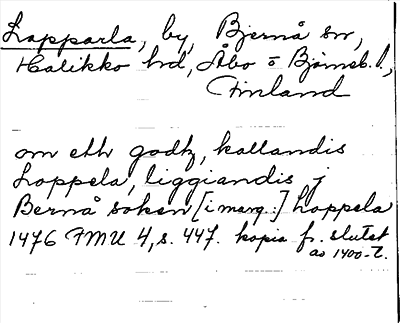 Lapparla, by, Bjernå sn,
Halikko hd, Åbo o Björneb. l.,
Finland
om eth godtz, kallandis
Loppela, liggiandis j
Bernå soken [i marg:] Loppela
1476 FMU 4, s. 447. kopia fr. slutet
av 1400-t.